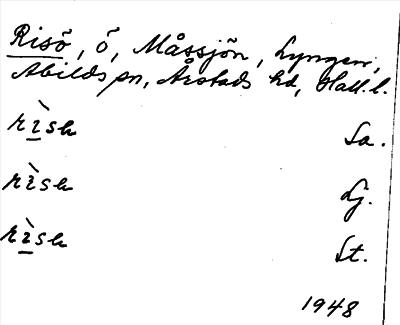 Risö, ö, Måssjön, Lyngen,
Abilds sn, Årstads hd, Hall. l.
rìsə Sa.
rìsə Lj.
rìsə St.
1948